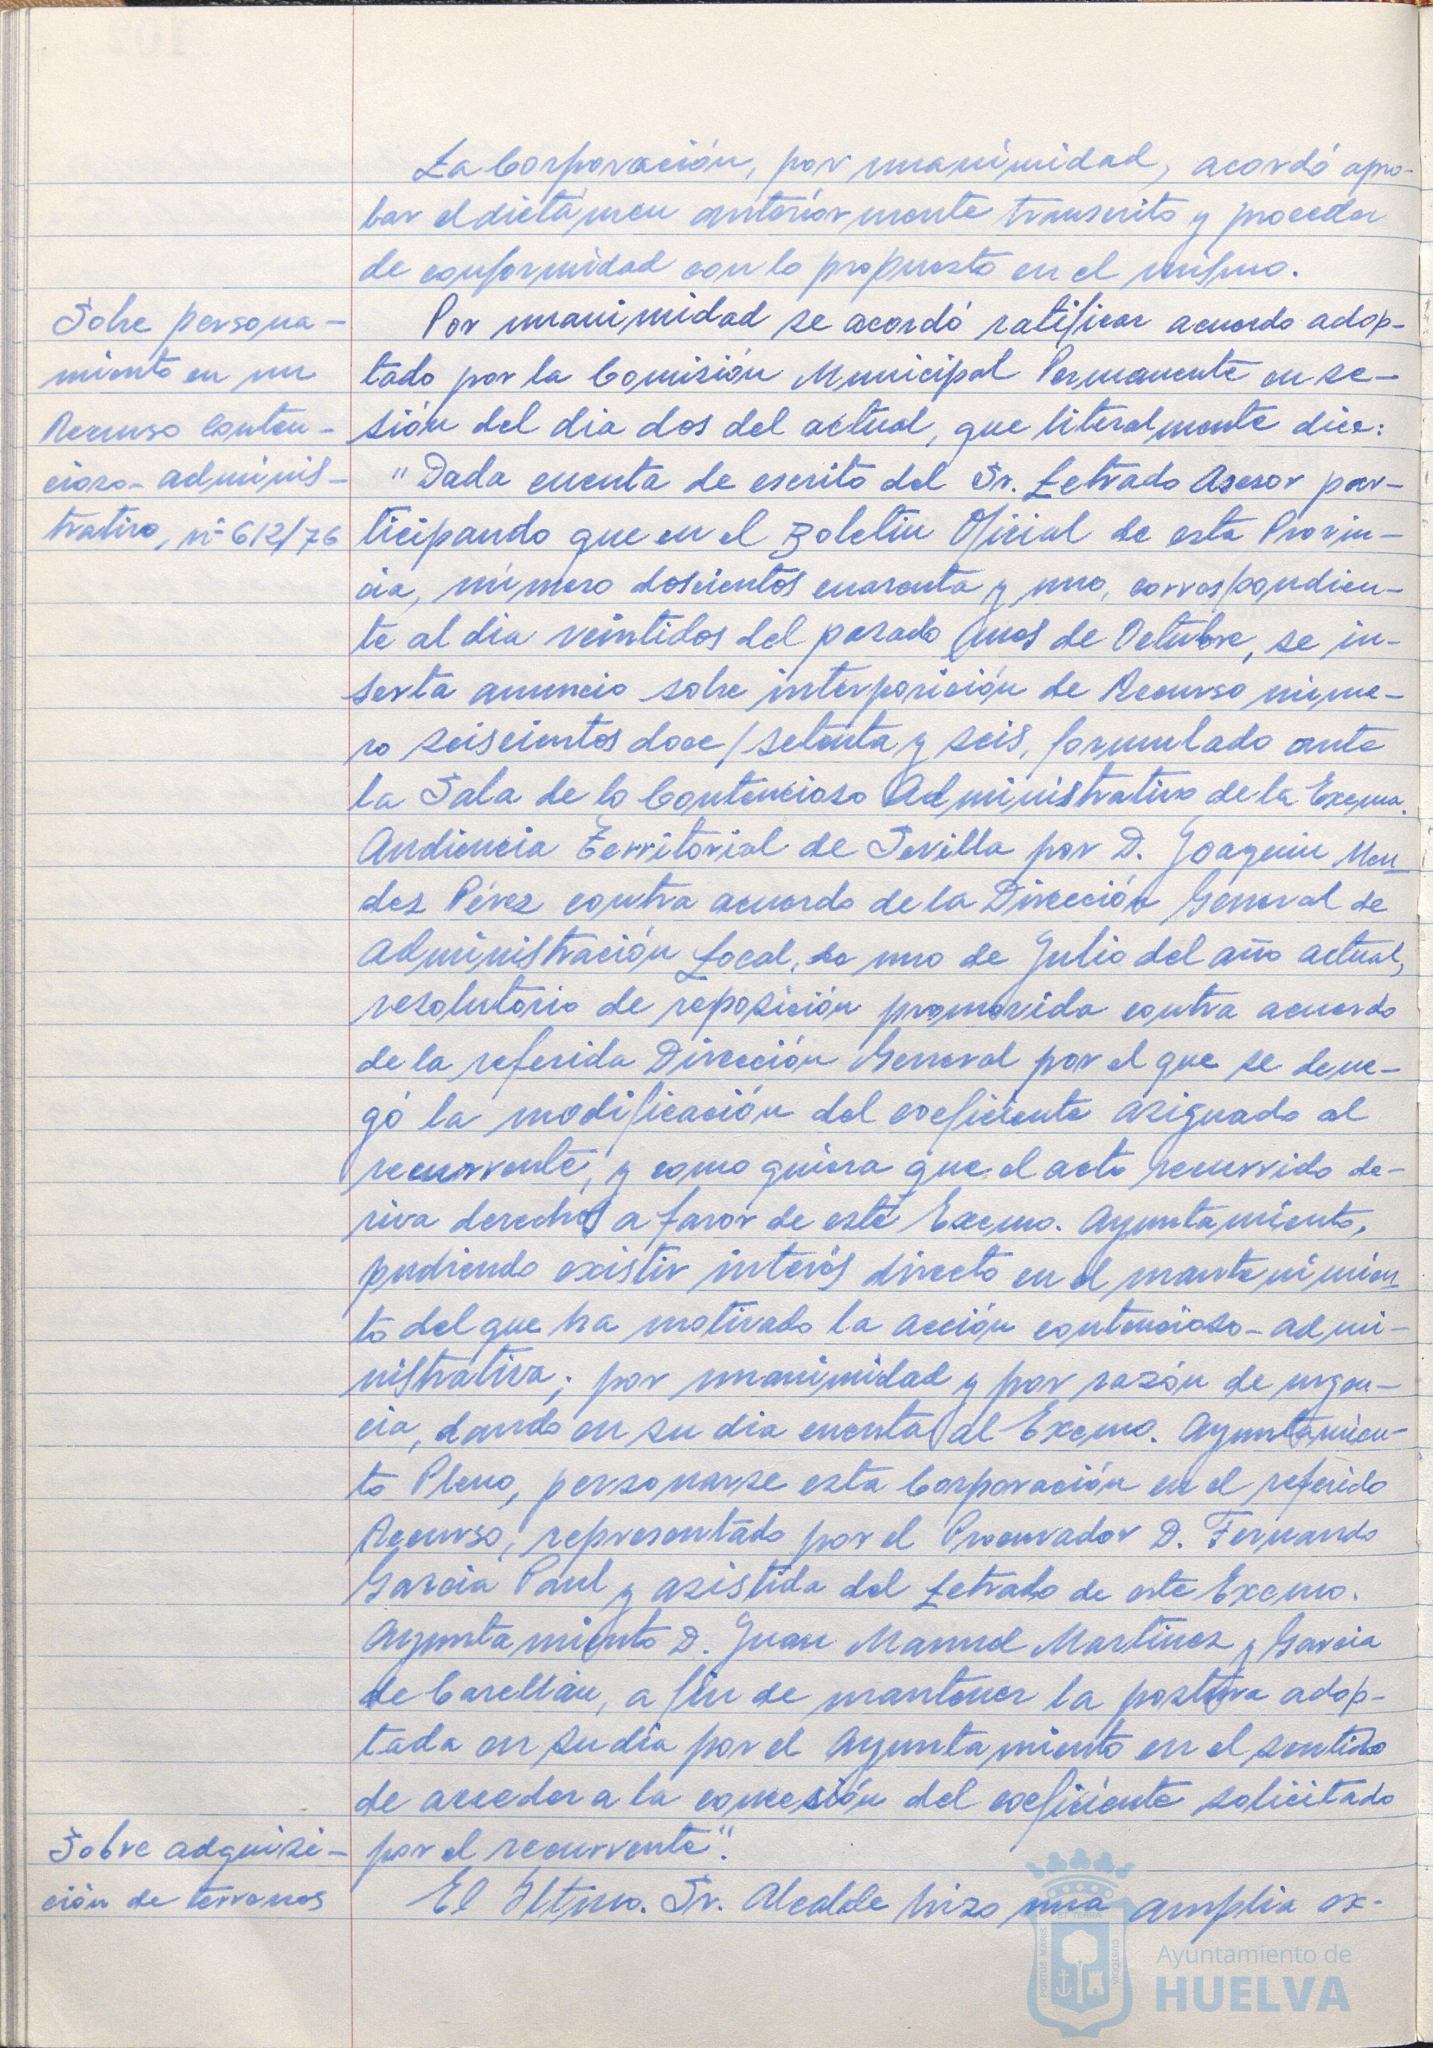 La Corporación, por unanimidad, acordó apro-
bar el dictámen anteriormente transcrito y proceder
de conformidad con lo propuesto en el mismo.
Sobre persona-
miento en un
Recurso Conten-
cioso-adminis-
trativo, nº 612/76
Por unanimidad se acordó ratificar acuerdo adop-
tado por la Comisión Municipal Permanente en se-
sión del dia dos del actual, que literalmente dice:
"Dada cuenta de escrito del Sr. Letrado Asesor par-
ticipando que en el Boletin Oficial de esta Provin-
cia, número doscientos cuarenta y uno, correspondien-
te al dia veintidos del pasado mes de Octubre, se in-
serta anuncio sobre interposición de Recurso núme-
ro seiscientos doce/setenta y seis, formulado ante
la Sala de lo Contencioso Administrativo de la Excma.
Audiencia Territorial de Sevilla por D. Joaquin Men-
dez Pérez contra acuerdo de la Dirección General de
Administración Local, de uno de Julio del año actual,
resolutorio de reposición promovida contra acuerdo
de la referida Dirección General por el que se dene-
gó la modificación del coeficiente asignado al
recurrente, y como quiera que el acto recurrido de-
riva derechos a favor de este Excmo. Ayuntamiento,
pudiendo existir interés directo en el mantenimien-
to del que ha motivado la acción contencioso-admi-
nistrativa; por unanimidad y por razón de urgen-
cia, dando en su dia cuenta al Excmo. Ayuntamien-
to Pleno, personarse esta Corporación en el referido
Recurso, representado por el Procurador D. Fernando
Garcia Paul y asistida del Letrado de este Excmo.
Ayuntamiento D. Juan Manuel Martinez y Garcia
de Carellán, a fin de mantener la postura adop-
tada en su dia por el Ayuntamiento en el sentido
de acceder a la concesión del coeficiente solicitado
por el recurrente".
Sobre adquisi-
ción de terrenos
El Iltmo. Sr. Alcalde hizo una amplia ex-
PORTUS MARIS ET TERRAE CUSTODIA
Ayuntamiento de
HUELVA